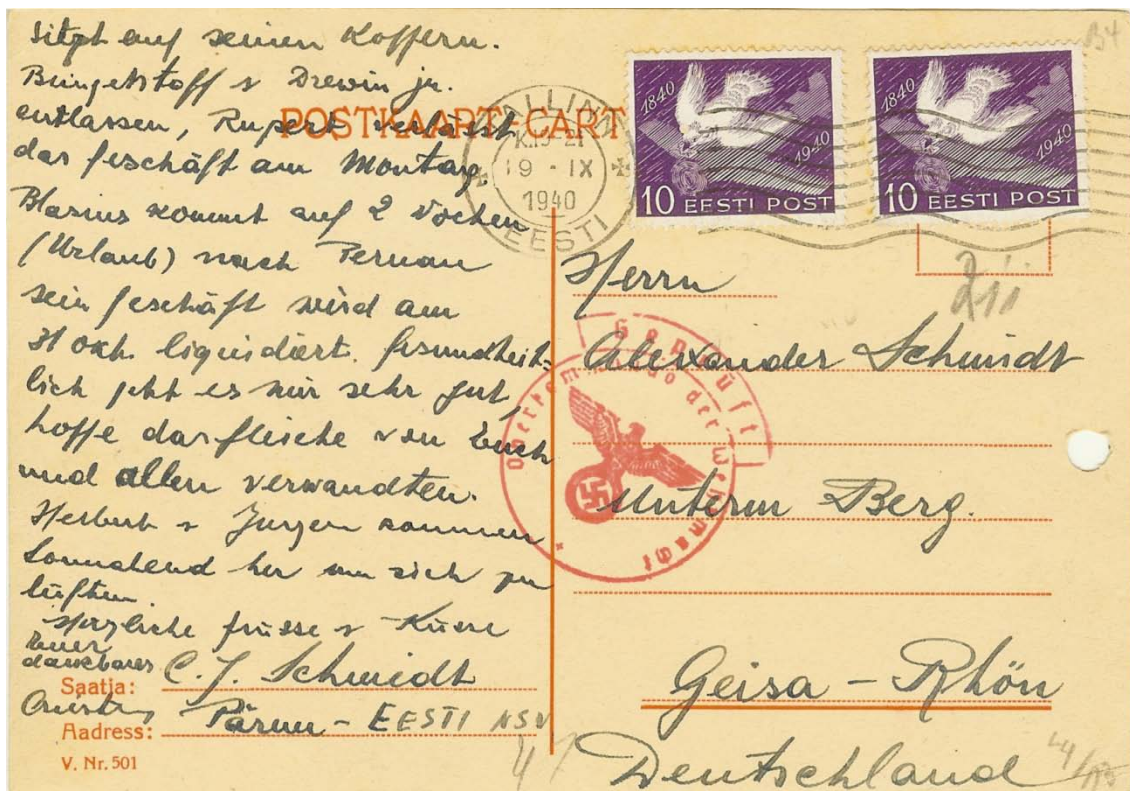 sitzt auf seinen Koffern.
Büngerstoff & Drewin jr.
entlassen, Rupert verlässt
das Geschäft am Montag.
Blasius kommt auf 2 Wochen
(Urlaub) nach Pernau
sein Geschäft wird am
31 okt. liquidiert. Gesundheit=
lich geht es mir sehr gut,
hoffe das gleiche von Euch
und allen verwandten.
Herbert & Jürgen kommen
Sonnabend her um sich zu
lüften.
Herzliche Grüsse & Küsse
Euer
dankbarer
Saatja: C. J. Schmidt
Aadress: Pärnu - EESTI NSV
V. Nr. 501
POSTKAART-CART
TALLINN
K.19-21
19 - IX
1940
EESTI
1840
1940
10 EESTI POST
1840
1940
10 EESTI POST
B4
Herrn
Alexander Schmidt
Unterm Berg.
Geisa - Rhön
Deutschland
Geprüft
Oberkommando der Wehrmacht
47